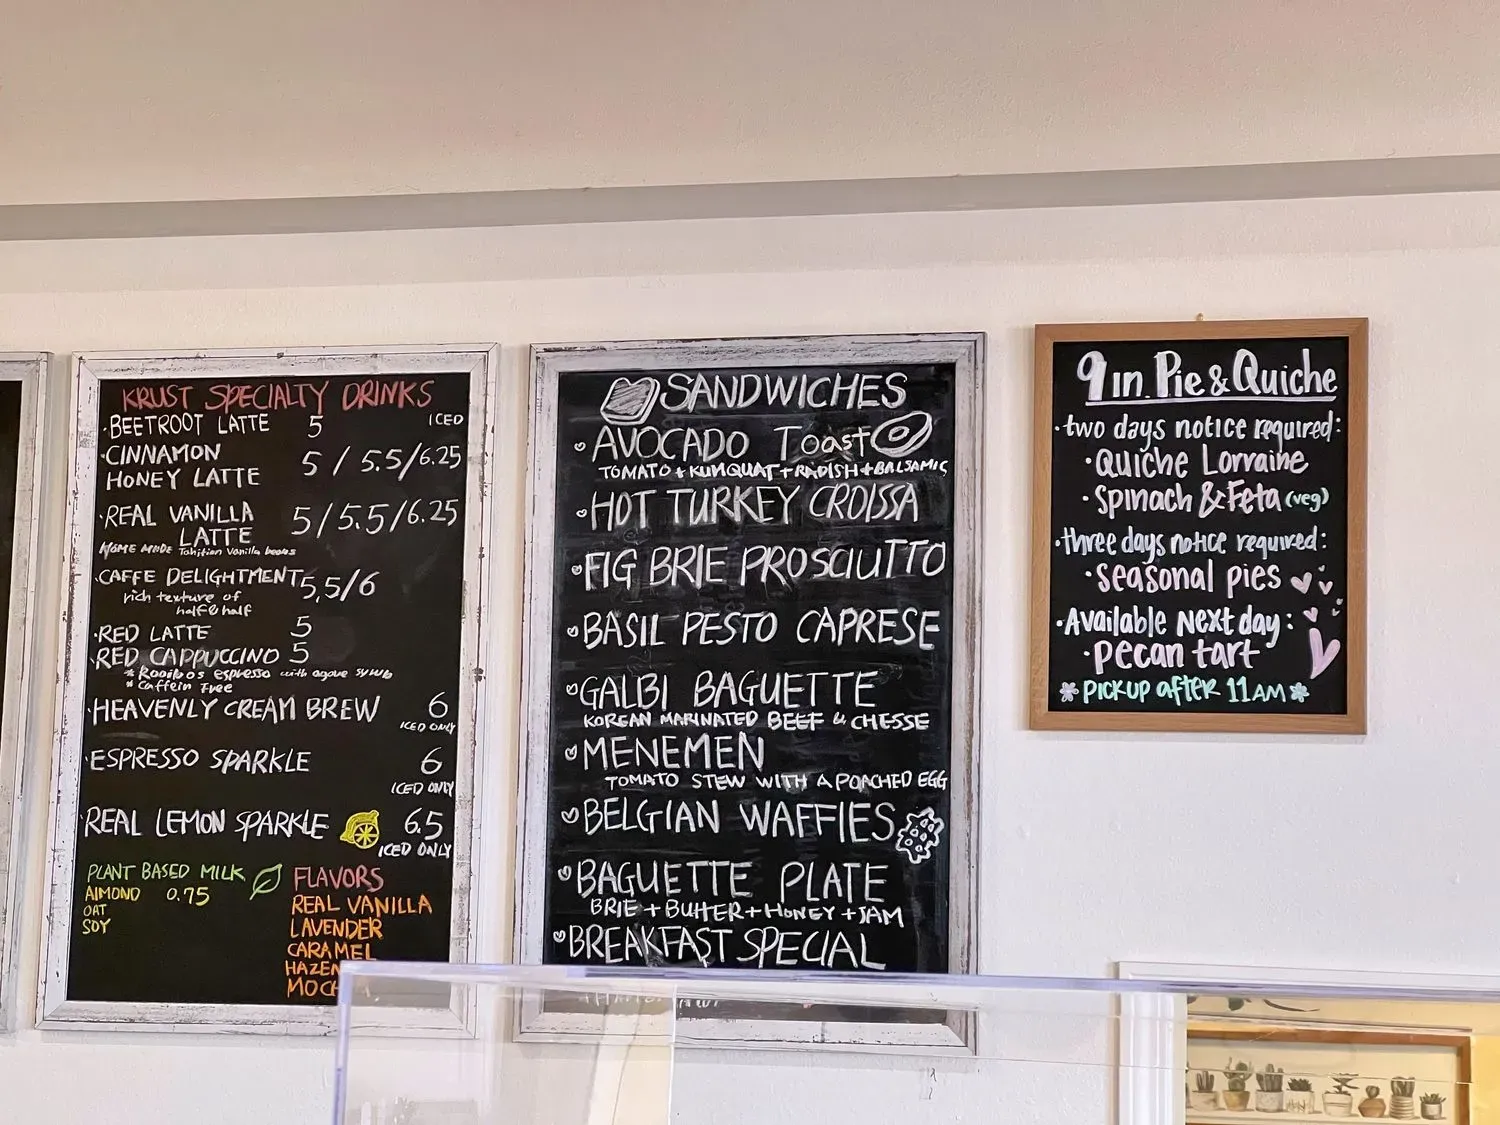 KRUST SPECIALTY DRINKS
·BEETROOT LATTE 5 ICED
·CINNAMON
HONEY LATTE 5 / 5.5/6.25
·REAL VANILLA
LATTE 5/5.5/6.25
HOME MADE Tahitian Vanilla beans
·CAFFE DELIGHTMENT 5,5/6
rich texture of
half & half
·RED LATTE 5
·RED CAPPUCCINO 5
* Rooibos espresso with agave syrub
* Caffein Free
·HEAVENLY CREAM BREW 6
ICED ONLY
·ESPRESSO SPARKLE 6
ICED ONLY
·REAL LEMON SPARKLE 6.5
ICED ONLY
PLANT BASED MILK
AlMOND 0.75
OAT
SOY
FLAVORS
REAL VANILLA
LAVENDER
CARAMEL
SANDWICHES
AVOCADO Toast
TOMATO + KUMQUAT + RADISH + BALSAMIC
HOT TURKEY CROISSA
FIG BRIE PROSCIUTTO
BASIL PESTO CAPRESE
GALBI BAGUETTE
KOREAN MARINATED BEEF & CHESSE
MENEMEN
TOMATO STEW WITH A POACHED EGG
BELGIAN WAFFlES
BAGUETTE PLATE
BRIE + BUTTER + HONEY + JAM
BREAKFAST SPECIAL
9 in. Pie & Quiche
·two days notice required:
·Quiche Lorraine
·Spinach & Feta (veg)
·three days notice required:
·seasonal pies
·Available Next day:
·pecan tart
PICKUP after 11AM